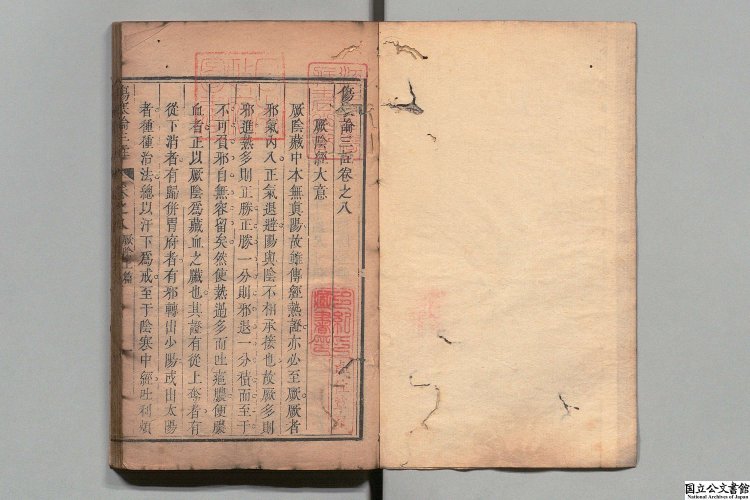 傷寒論三註卷之八
厥陰經大意
厥陰藏中本無真陽故雖傳經熱證亦必至厥厥者
邪氣內入正氣退避陽與陰不相承接也故厥多則
邪進熱多則正勝正勝一分則邪退一分積而至于
不可負邪自無容留矣然使熱過多而吐癰膿便膿
血者正以厥陰爲藏血之臟也其證有從上奪者有
從下消者有歸併胃府者有邪轉出少陽或出太陽
者種種治法總以汗下爲戒至于陰寒中經吐利煩
傷寒論三註
卷之八 厥陰篇
一
國立公文書館
National Archives of Japan